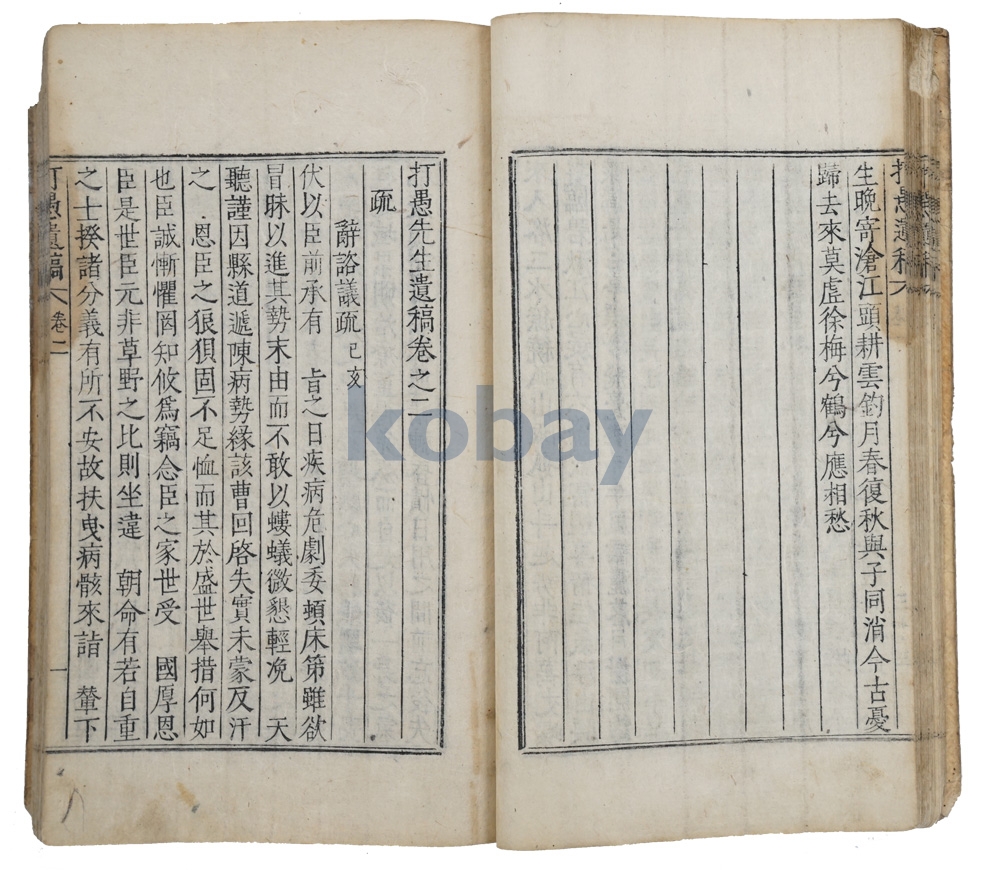 生晩寄滄江頭耕雲釣月春復秋與子同消今古憂
歸去來莫虛徐梅兮鶴兮應相愁
打愚先生遺稿卷之二
疏
辭諮議疏 己亥
伏以臣前承有 旨之日疾病危劇委頓床笫雖欲
冒昧以進其勢末由而不敢以螻蟻微懇輕浼 天
聽謹因縣道遞陳病勢緣該曹回啓失實未蒙反汗
之 恩臣之狼狽固不足恤而其於盛世舉措何如
也臣誠慚懼罔知攸爲竊念臣之家世受 國厚恩
臣是世臣元非草野之比則坐違 朝命有若自重
之士揆諸分義有所不安故扶曳病骸來詣 輦下
打愚遺稿 卷二
一
kobay